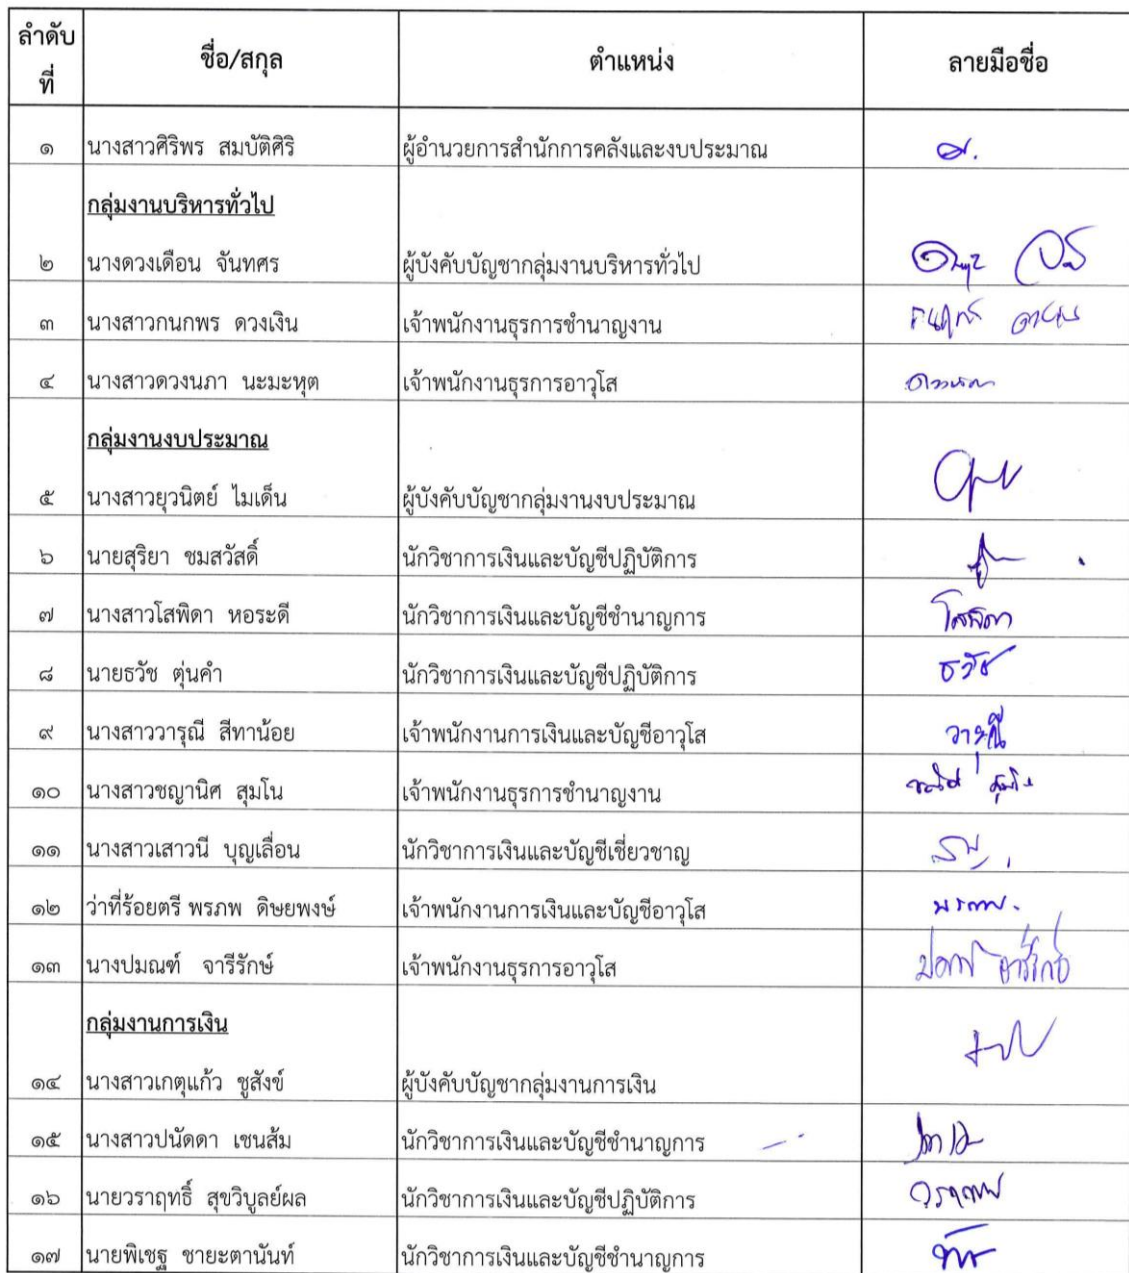 ลำดับ
ที่
ชื่อ/สกุล ตำแหน่ง ลายมือชื่อ
๑ นางสาวศิริพร สมบัติศิริ ผู้อำนวยการสำนักการคลังและงบประมาณ ศ.
กลุ่มงานบริหารทั่วไป
๒ นางดวงเดือน จันทศร ผู้บังคับบัญชากลุ่มงานบริหารทั่วไป
๓ นางสาวกนกพร ดวงเงิน เจ้าพนักงานธุรการชำนาญงาน
๔ นางสาวดวงนภา นะมะหุต เจ้าพนักงานธุรการอาวุโส
กลุ่มงานงบประมาณ
๕ นางสาวยุวนิตย์ ไมเด็น ผู้บังคับบัญชากลุ่มงานงบประมาณ
๖ นายสุริยา ชมสวัสดิ์ นักวิชาการเงินและบัญชีปฏิบัติการ
๗ นางสาวโสพิดา หอระดี นักวิชาการเงินและบัญชีชำนาญการ โสพิดา
๘ นายธวัช ตุ่นคำ นักวิชาการเงินและบัญชีปฏิบัติการ ธวัช
๙ นางสาววารุณี สีทาน้อย เจ้าพนักงานการเงินและบัญชีอาวุโส วารุณี
๑๐ นางสาวชญานิศ สุมโน เจ้าพนักงานธุรการชำนาญงาน
๑๑ นางสาวเสาวนี บุญเลื่อน นักวิชาการเงินและบัญชีเชี่ยวชาญ
๑๒ ว่าที่ร้อยตรี พรภพ ดิษยพงษ์ เจ้าพนักงานการเงินและบัญชีอาวุโส พรภพ.
๑๓ นางปมณฑ์ จารีรักษ์ เจ้าพนักงานธุรการอาวุโส
กลุ่มงานการเงิน
๑๔ นางสาวเกตุแก้ว ชูสังข์ ผู้บังคับบัญชากลุ่มงานการเงิน
๑๕ นางสาวปนัดดา เชนส้ม นักวิชาการเงินและบัญชีชำนาญการ
๑๖ นายวราฤทธิ์ สุขวิบูลย์ผล นักวิชาการเงินและบัญชีปฏิบัติการ
๑๗ นายพิเชฐ ชายะตานันท์ นักวิชาการเงินและบัญชีชำนาญการ